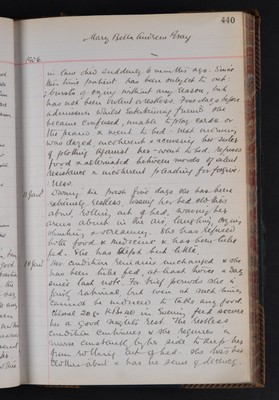 440
Mary Bella Andrews Gray
1906
in law died suddenly 6 months ago. Since
this time patient has been subject to out:
:bursts of crying without any reason, but
has not been violent or restless. Four days before
admission whilst entertaining friends she
became confused, unable to play cards or
the piano & went to bed. Next morning
was dazed, incoherent & accusing her sister
of plotting against her - went to bed, refused
food & alternated between moods of silent
resistance & incoherent pleading for forgive-
ness.
During the first five days she has been
extremely restless, tossing her bed clothes
about, rolling out of bed, waving her
arms about in the air, laughing, crying,
& screaming. She has refused
both food & medicine & has been tube
fed. She has slept but little.
Her condition remains unchanged & she
has been tube fed, at least twice a day
since last note. For brief periods she is
fairly rational, but even at such times
cannot be induced to take any food.
Chloral 20 grs KBr 40 in evening feed secures
her a good night's rest. The restless
condition continues & she requires a
nurse constantly by her side to keep her
from rolling out of bed. She tosses her
clothes about & has no sense of decency.